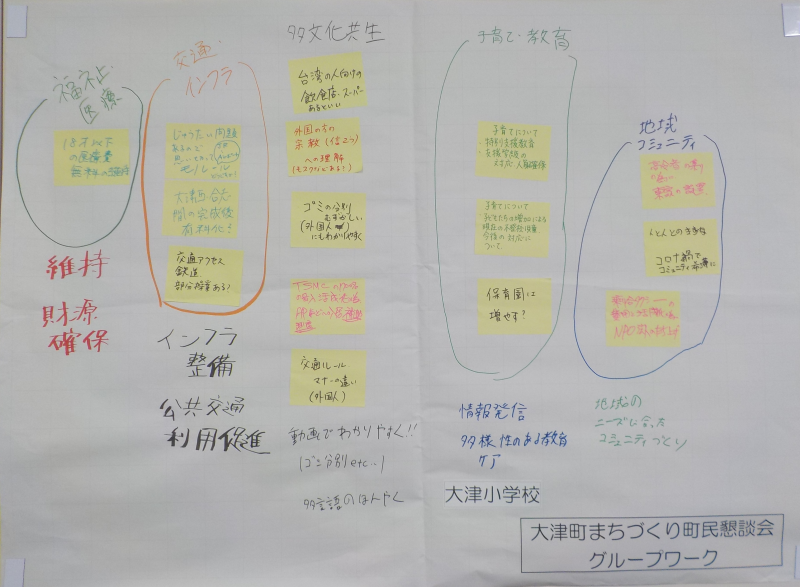 福祉・
医療
18才以下
の医療費
無料の維持
維持
財源
確保
交通・
インフラ
じゅうたい問題
あるので
思いきって
モノレール
大津西・合志
間の完成後
有料化!
交通アクセス
鉄道
部分障害ある!
インフラ
整備
公共交通
利用促進
多文化共生
台湾の人向けの
飲食店・スーパー
あるといい
外国の方の
宗教(信こう)
への理解
(モスクがある!)
ゴミの分別
むずかしい
(外国人
にもわかりやすく
TSMC
交通ルール
マナーの違い
(外国人)
動画でわかりやすく!!
(ゴミ分別etc..)
多言語のほんやく
子育て・教育
子育てについて
・特別支援教育
・支援学級の
対応・人員確保
子育てについて
・子どもたちの増加による
現在の不登校児童
今後の対応に
ついて
保育園は
増やす?
情報発信
多様性のある教育
ケア
地域
コミュニティ
人と人とのささえ
コロナ禍で
コミュニティ希薄に
地域の
ニーズに合った
コミュニティづくり
大津小学校
大津町まちづくり町民懇談会
グループワーク